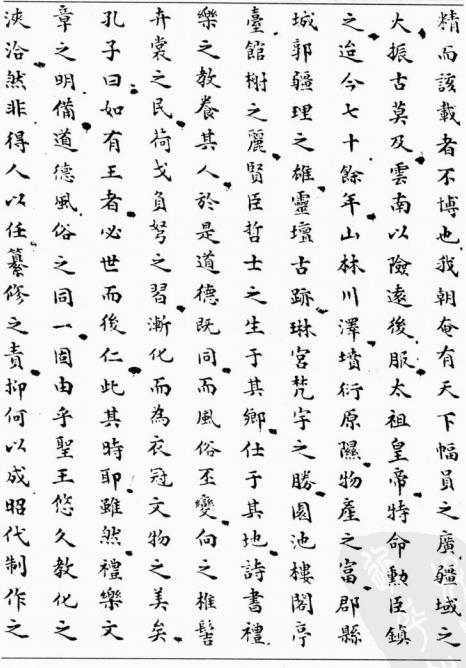 精而該載者不博也我朝奄有天下幅員之廣疆域之
大振古莫及雲南以險遠後服太祖皇帝特命勲臣鎮
之迨今七十餘年山林川澤墳衍原隰物產之富郡縣
城郭疆理之雄靈壇古跡琳宮梵宇之勝園池樓閣亭
臺館榭之麗賢臣哲士之生于其鄉仕于其地詩書禮
樂之教養其人於是道德既同而風俗丕變向之椎髻
卉裳之民荷戈負弩之習漸化而為衣冠文物之美矣
孔子曰如有王者必世而後仁此其時耶雖然禮樂文
章之明備道德風俗之同一固由乎聖王悠久教化之
浹洽然非得人以任纂修之責抑何以成昭代制作之